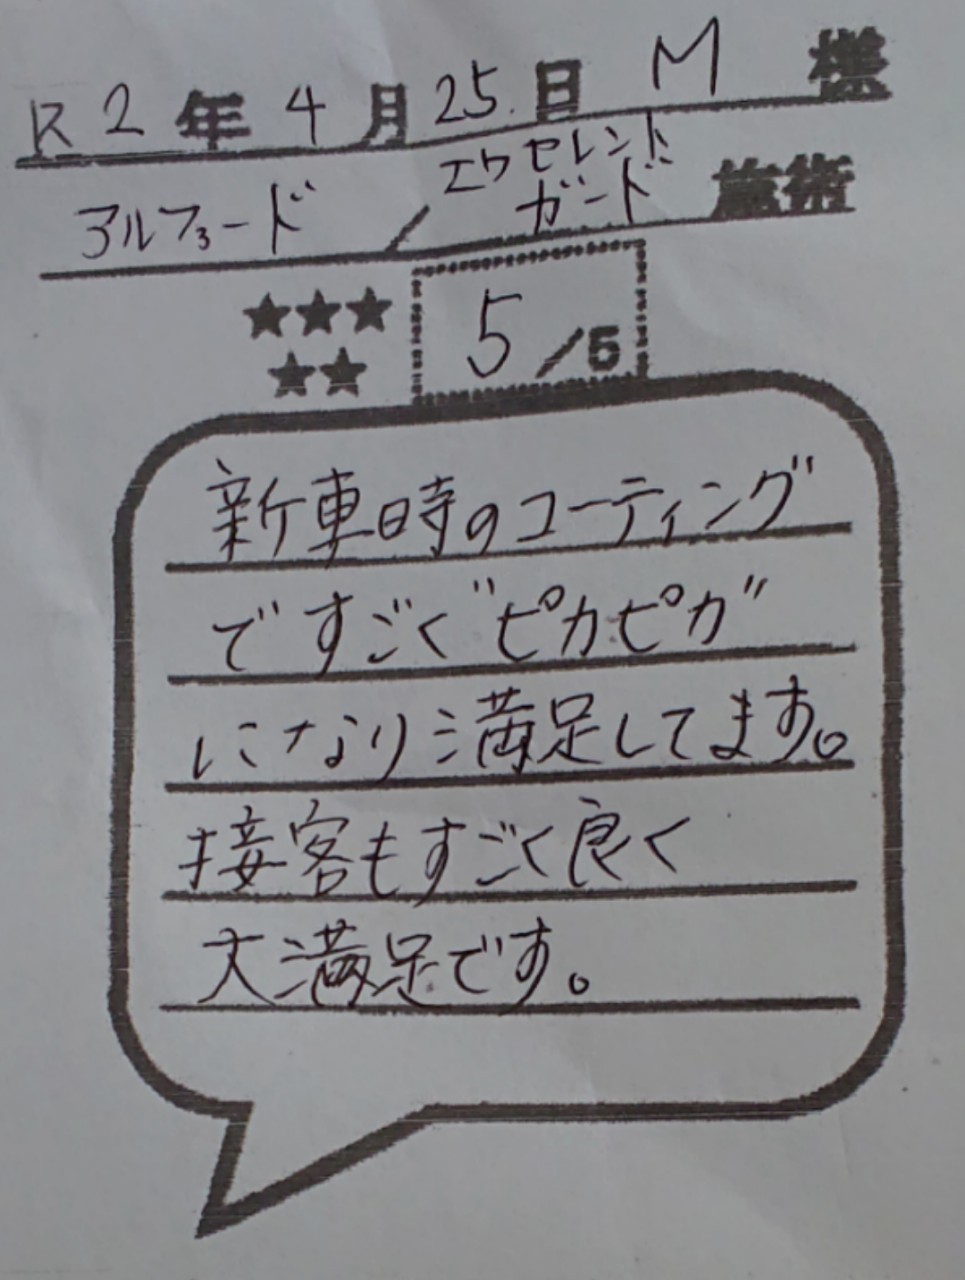 R2年4月25日 M 様
アルファード / エクセレントガード 施術
★★★★★ 5/5
新車時のコーティング
ですごく"ピカピカ"
になり満足してます。
接客もすごく良く
大満足です。